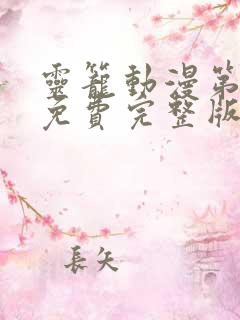 靈籠動漫第
免費完整版
長矢